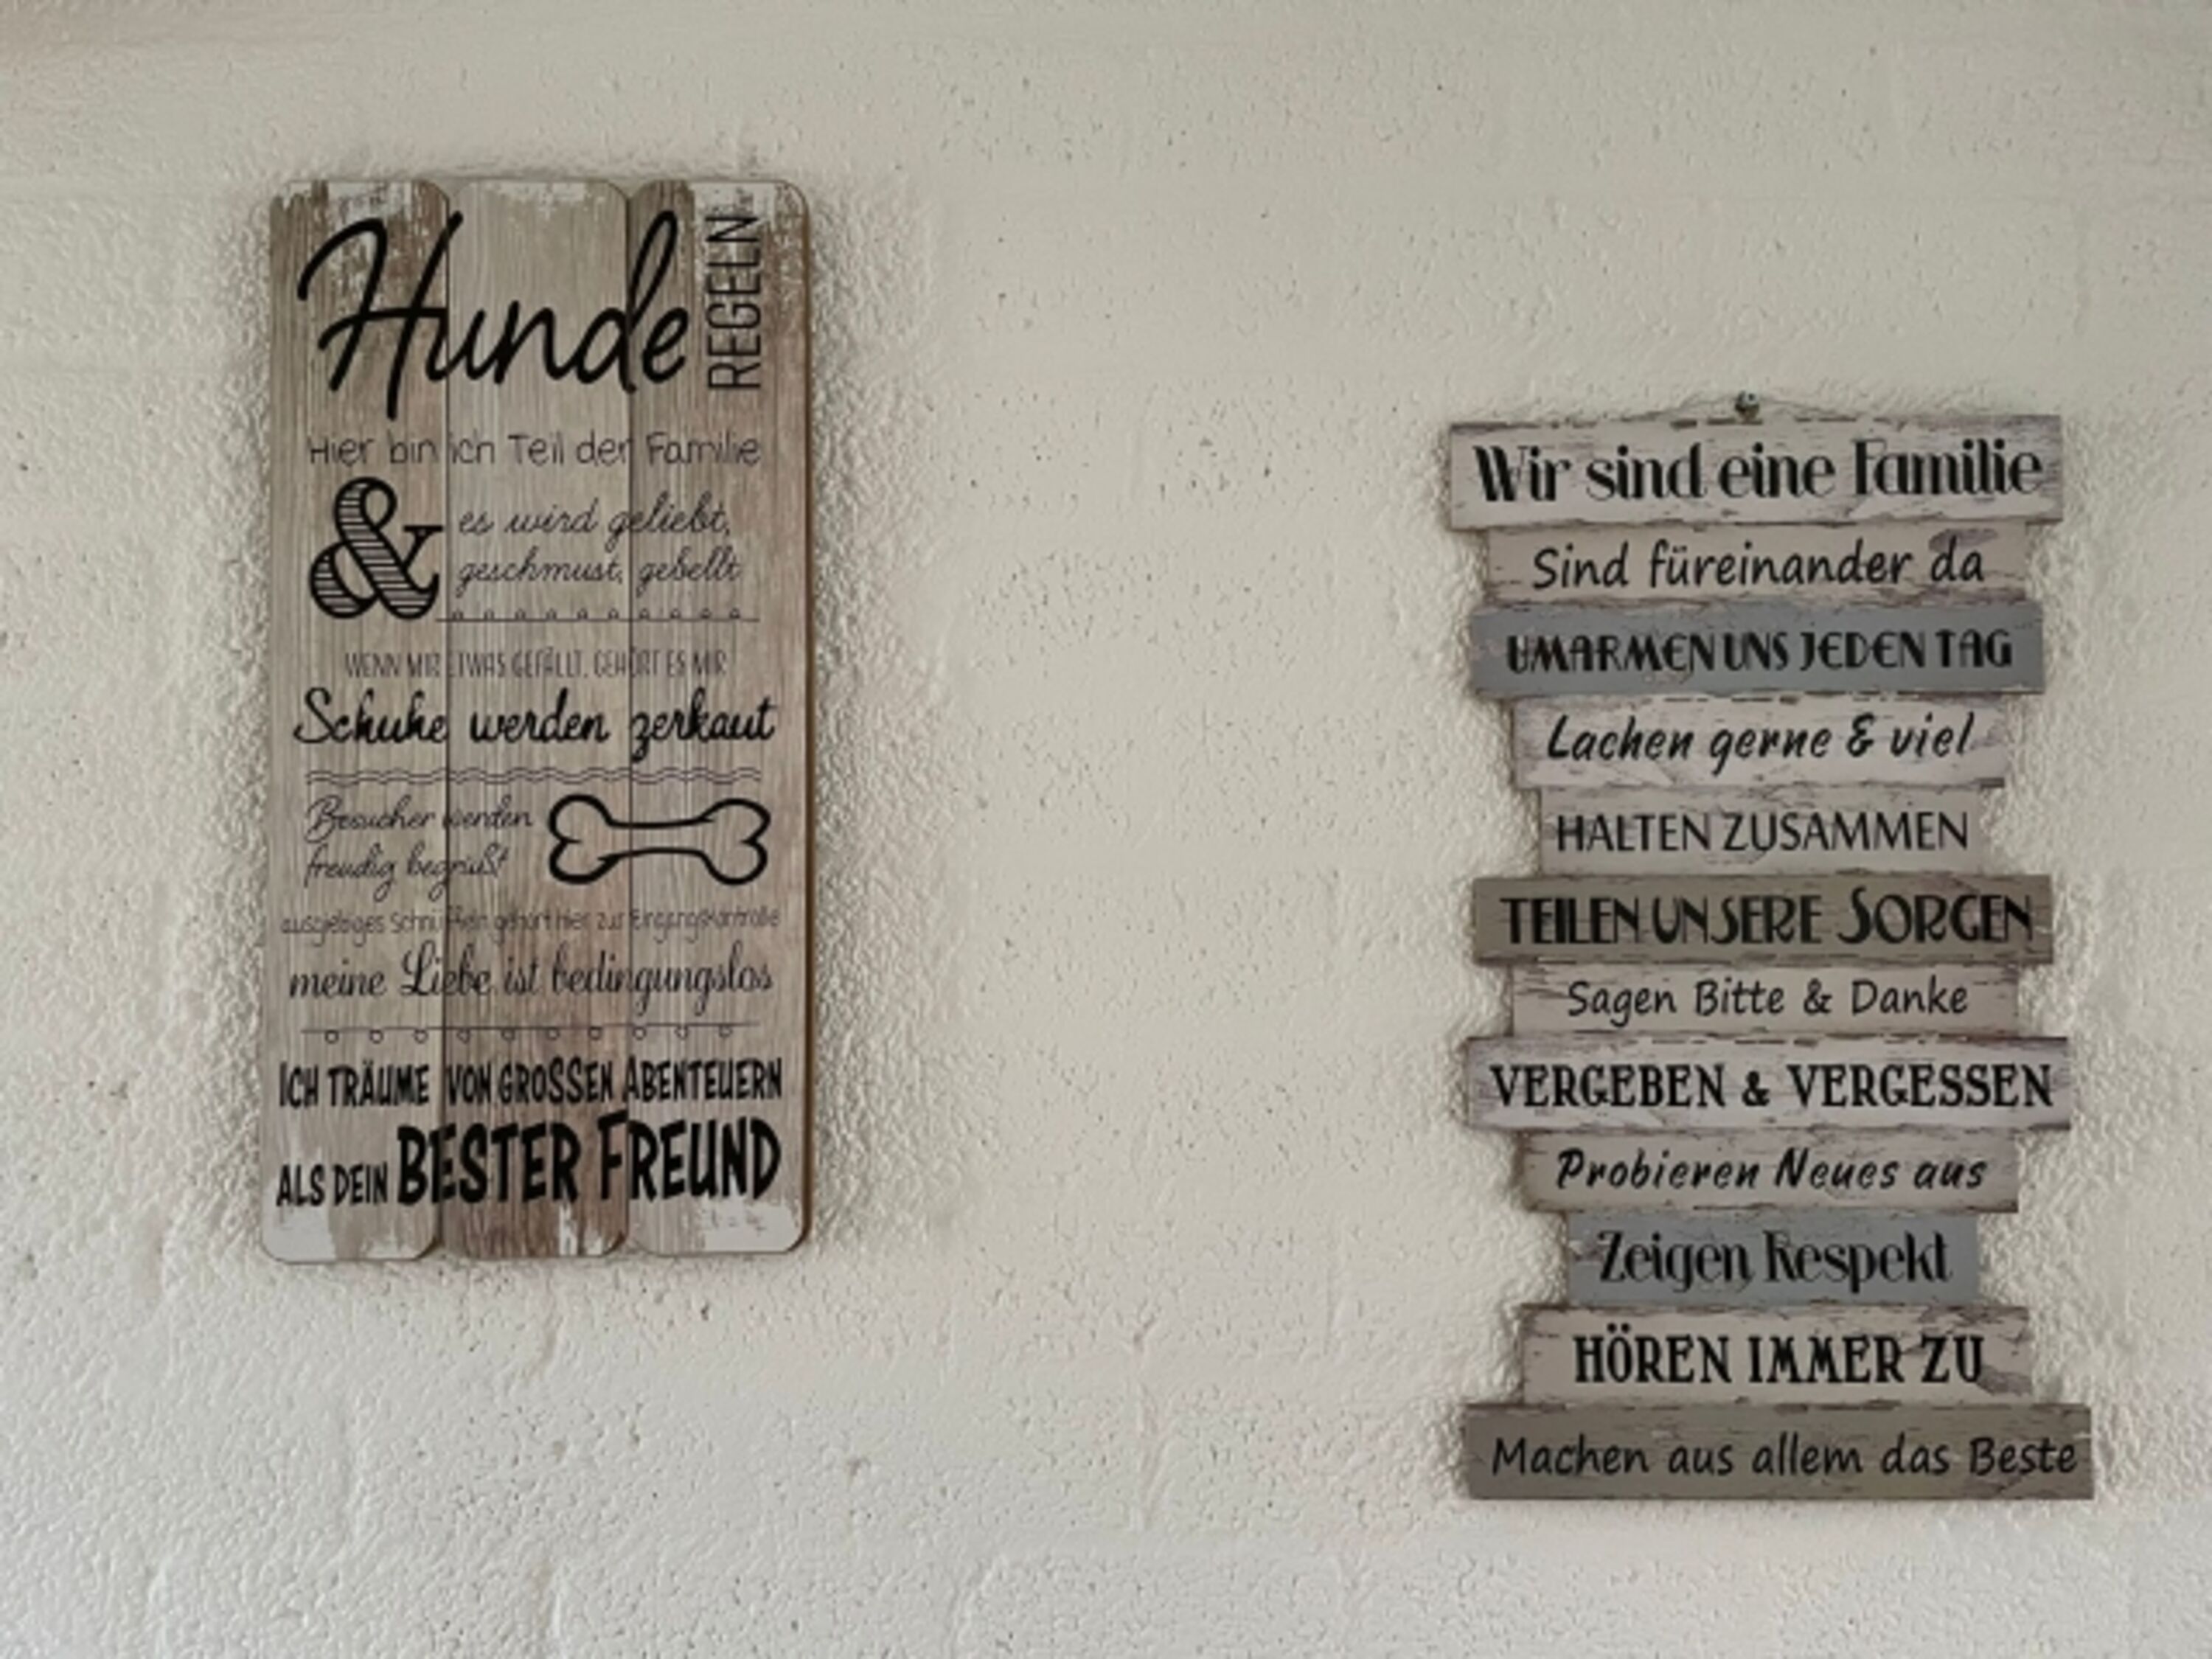 Hunde REGELN
Hier bin ich Teil der Familie
& es wird geliebt,
geschmust, gebellt
WENN MIR ETWAS GEFÄLLT, GEHÖRT ES MIR
Schuhe werden zerkaut
Besucher werden
freudig begrüßt
ausgiebiges Schnüffeln gehört hier zur Eingangskontrolle
meine Liebe ist bedingungslos
ICH TRÄUME VON GROSSEN ABENTEUERN
ALS DEIN BESTER FREUND
Wir sind eine Familie
Sind füreinander da
UMARMEN UNS JEDEN TAG
Lachen gerne & viel
HALTEN ZUSAMMEN
TEILEN UNSERE SORGEN
Sagen Bitte & Danke
VERGEBEN & VERGESSEN
Probieren Neues aus
Zeigen Respekt
HÖREN IMMER ZU
Machen aus allem das Beste